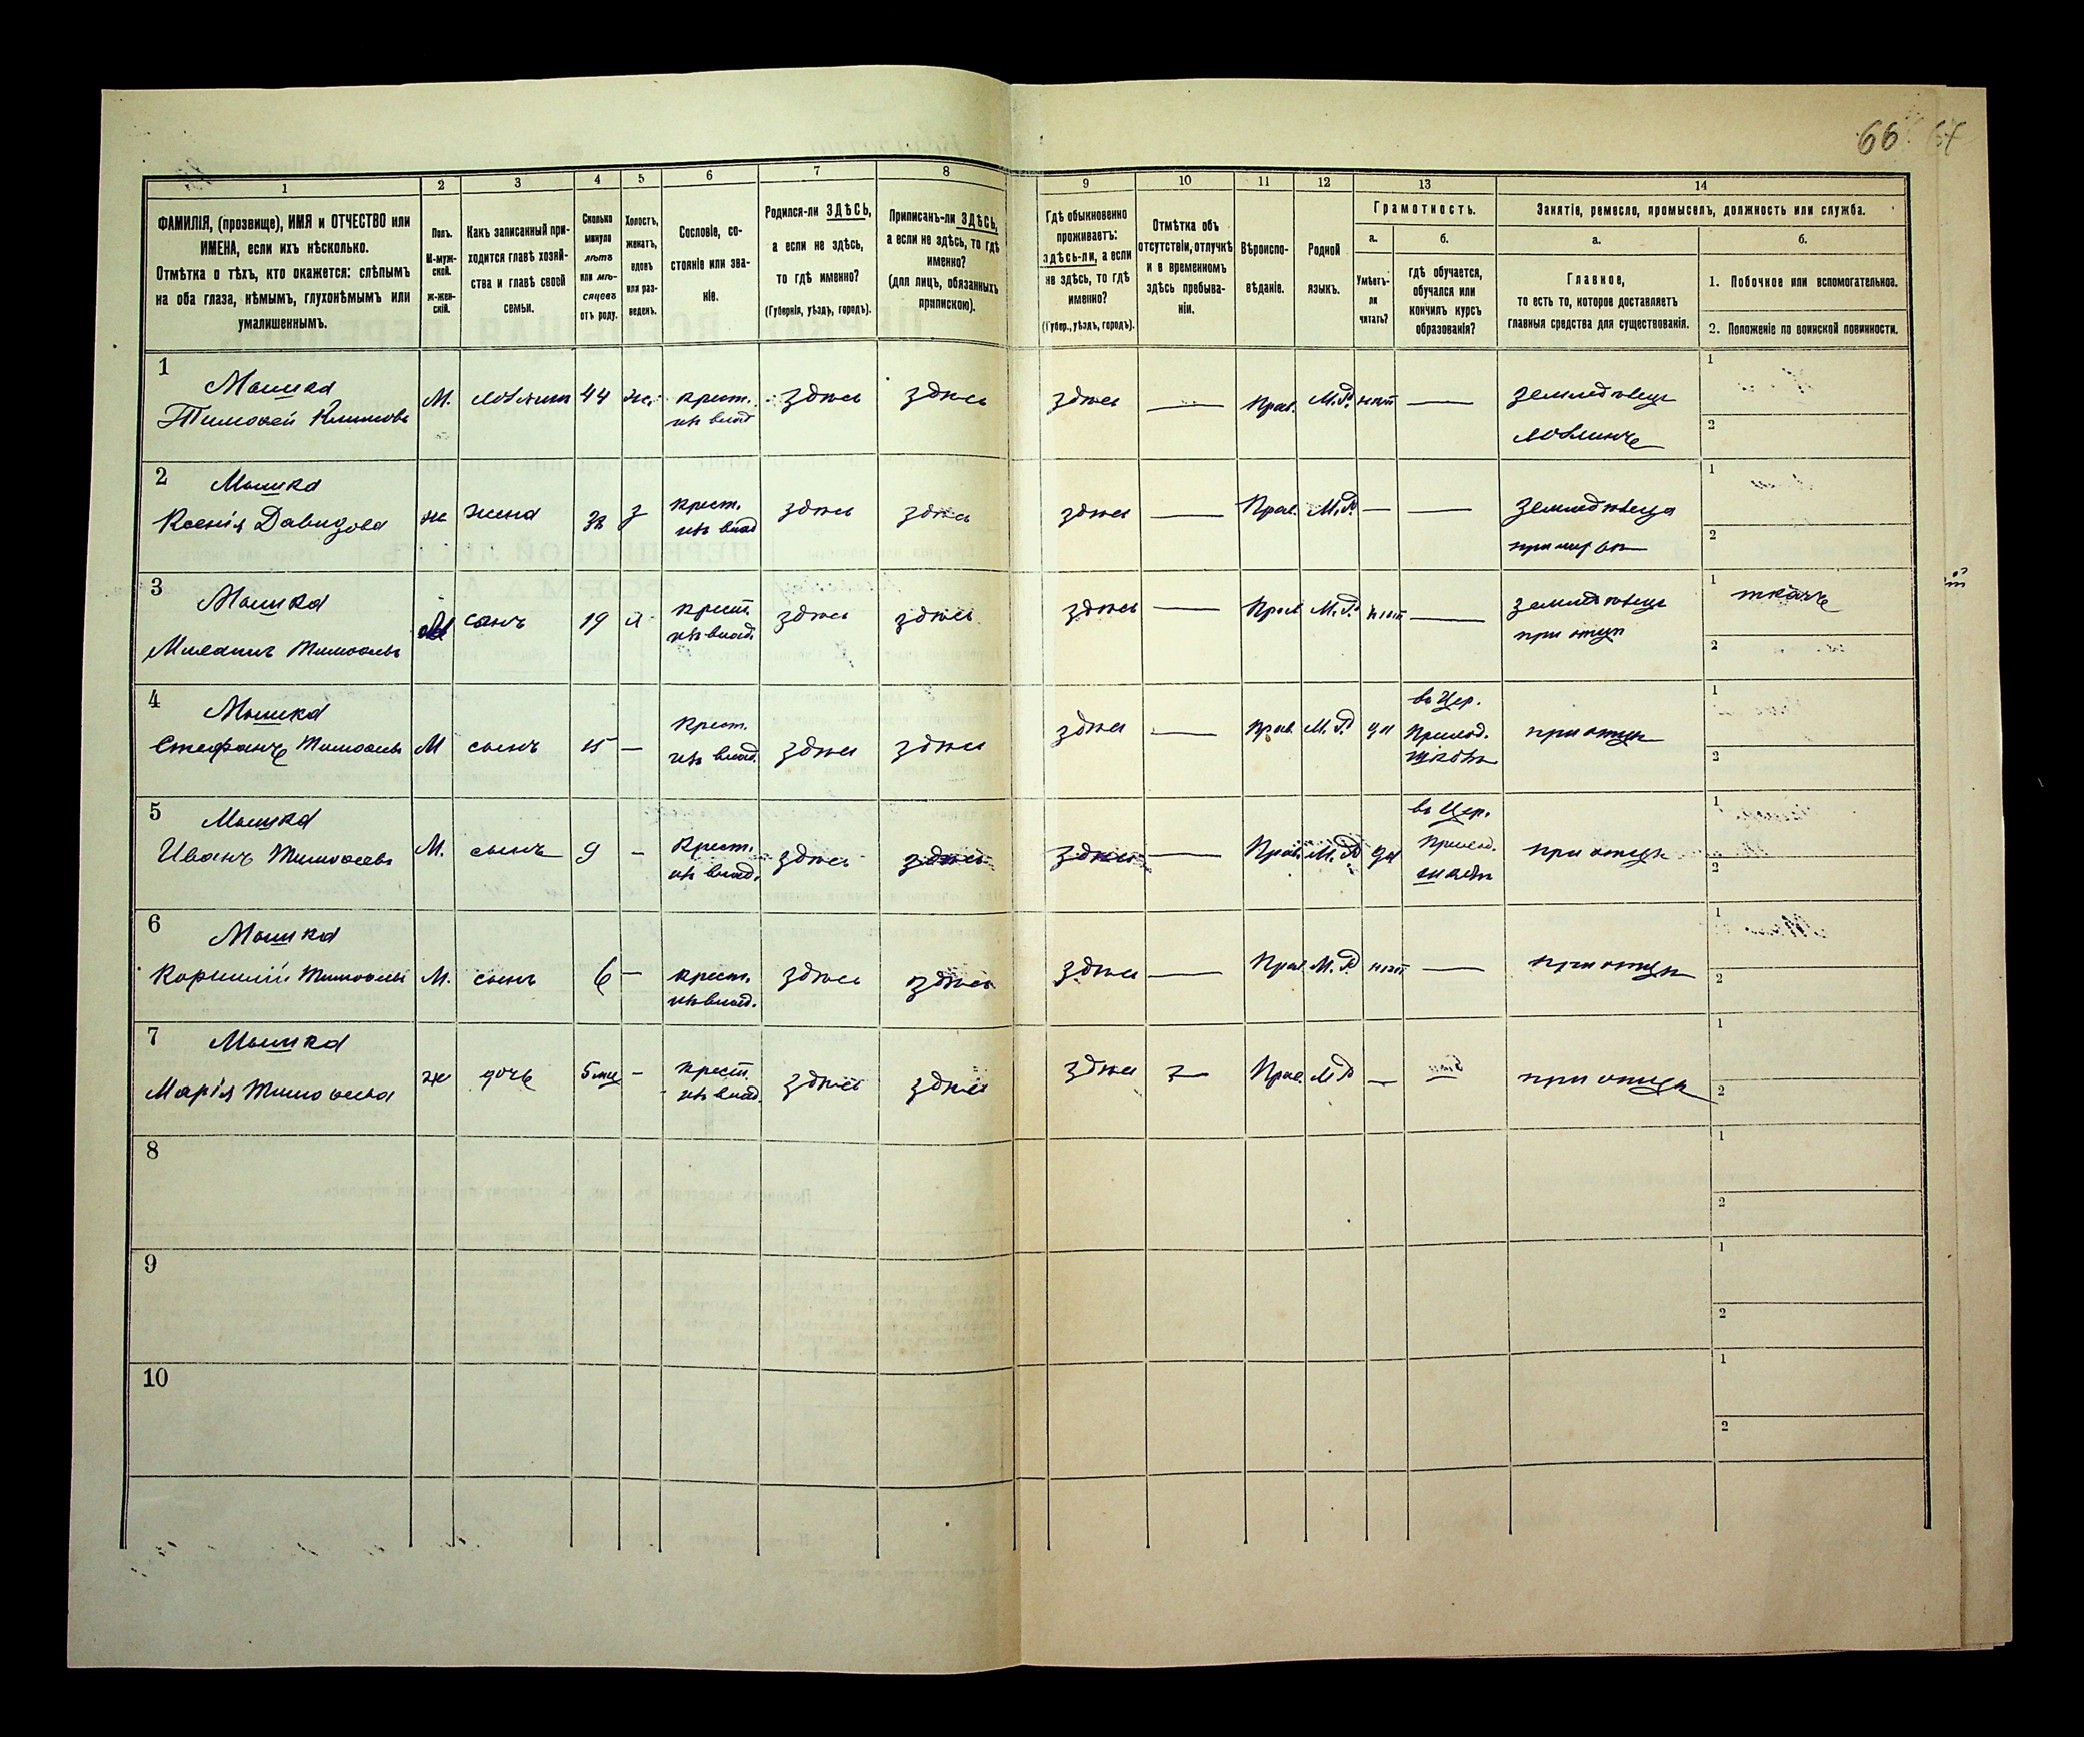 66
1 2 3 4 5 6 7 8 9 10 11 12 13 14
ФАМИЛІЯ, (прозвище), ИМЯ и ОТЧЕСТВО или
ИМЕНА, если ихъ нѣсколько.
Отмѣтка о тѣхъ, кто окажется: слѣпымъ
на оба глаза, нѣмымъ, глухонѣмымъ или
умалишеннымъ.
Полъ.
М-муж-
ской.
ж-жен-
скій.
Какъ записанный при-
ходится главѣ хозяй-
ства и главѣ своей
семьи.
Сколько
минуло
лѣтъ
или мѣ-
сяцевъ
отъ роду.
Холостъ,
женатъ,
вдовъ
или раз-
веденъ.
Сословіе, со-
стояніе или зва-
ніе.
Родился-ли ЗДѢСЬ,
а если не здѣсь,
то гдѣ именно?
(Губернія, уѣздъ, городъ).
Приписанъ-ли ЗДѢСЬ,
а если не здѣсь, то гдѣ
именно?
(для лицъ, обязанныхъ
припискою).
Гдѣ обыкновенно
проживаетъ:
здѣсь-ли, а если
не здѣсь, то гдѣ
именно?
(Губер., уѣздъ, городъ).
Отмѣтка объ
отсутствіи, отлучкѣ
и о временномъ
здѣсь пребыва-
ніи.
Вѣроиспо-
вѣданіе.
Родной
языкъ.
Грамотность.
а.
Умѣетъ-
ли
читать?
б.
гдѣ обучается,
обучался или
кончилъ курсъ
образованія?
Занятіе, ремесло, промыселъ, должность или служба.
а.
Главное,
то есть то, которое доставляетъ
главныя средства для существованія.
б.
1. Побочное или вспомогательное.
2. Положеніе по воинской повинности.
1
Мышка
Тимоѳей Климовъ
М. хозяинъ 44 же. крест.
изъ влад
здѣсь здѣсь здѣсь — Прав. М.Р. нѣтъ — земледѣлецъ
хозяинъ
1
2
2
Мышка
Ксенія Давидова
ж жена з крест.
изъ влад
здѣсь здѣсь здѣсь — Прав. М.Р. — — земледѣлица
при мужѣ
1
2
3
Мышка
Тимоѳеевъ
М сынъ 19 крест.
изъ влад.
здѣсь здѣсь здѣсь — Прав М.Р. нѣтъ — земледѣлецъ
при отцѣ
1 ткачъ
2
4
Мышка
Стефанъ Тимоѳеевъ
М сынъ 15 — крест.
изъ влад.
здѣсь здѣсь здѣсь — Прав. М.Р. да въ Цер.
Приход.
школѣ
при отцѣ
1
2
5
Мышка
Иванъ Тимоѳеевъ
М. сынъ 9 — Крест.
изъ влад.
здѣсь здѣсь здѣсь — Прав. М.Р. да въ Цер.
Приход.
школѣ
при отцѣ
1
2
6
Мышка
Корнилій Тимоѳеевъ
М. сынъ 6 — крест.
изъ влад.
здѣсь здѣсь здѣсь — Прав. М.Р. нѣтъ — при отцѣ
1
2
7
Мышка
Марія Тимоѳеева
ж дочь 5 мц — крест.
изъ влад.
здѣсь здѣсь здѣсь — Прав. МР — — при отцѣ
1
2
8
1
2
9
1
2
10
1
2